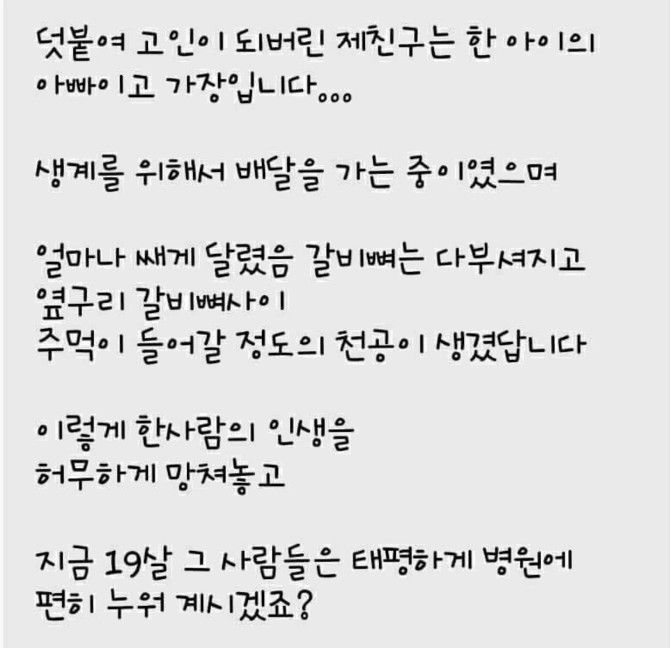 덧붙여 고인이 되버린 제친구는 한 아이의
아빠이고 가장입니다...
생계를 위해서 배달을 가는 중이였으며
얼마나 쌔게 달렸음 갈비뼈는 다부셔지고
옆구리 갈비뼈사이
주먹이 들어갈 정도의 천공이 생겼답니다
이렇게 한사람의 인생을
허무하게 망쳐놓고
지금 19살 그 사람들은 태평하게 병원에
편히 누워 계시겠죠?